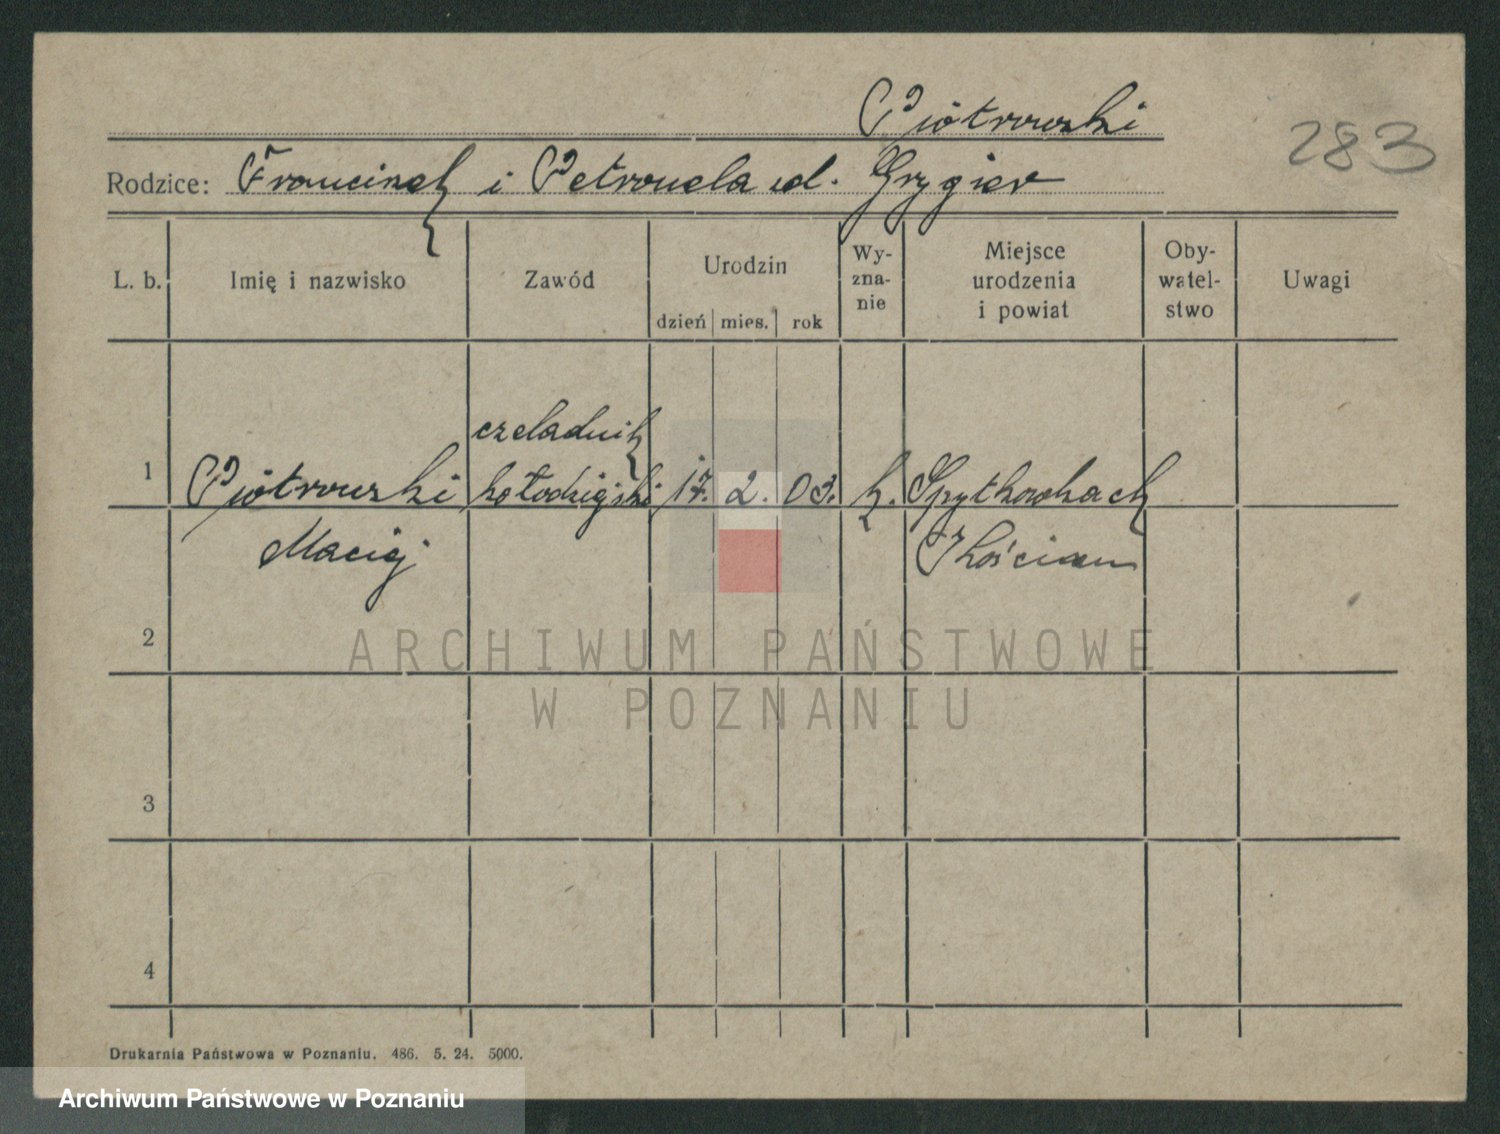 Piotrowski
283
Rodzice: Franciszek i Petronela ud. Grygier
L. b.
Imię i nazwisko
Zawód
Urodzin
dzień mies. rok
Wy-
zna-
nie
Miejsce
urodzenia
i powiat
Oby-
watel-
stwo
Uwagi
1
Piotrowski
Maciej
czeladnik
kołodziejski
17. 2. 03.
k.
Spytkowkach
Kościan
2
3
4
ARCHIWUM PAŃSTWOWE
W POZNANIU
Drukarnia Państwowa w Poznaniu. 486. 5. 24. 5000.
Archiwum Państwowe w Poznaniu